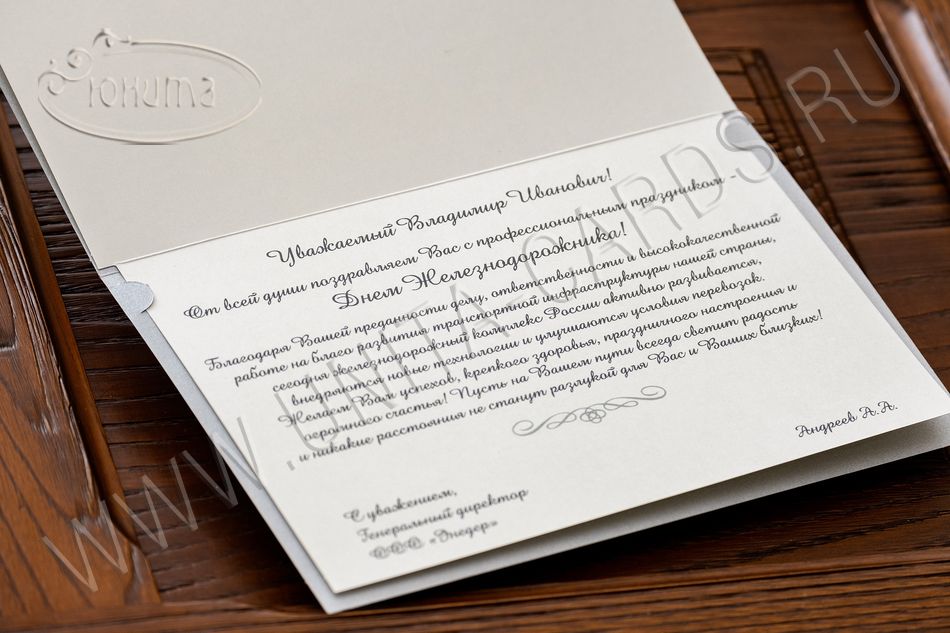 Юнита
WWW.UNITA-CARDS.RU
Уважаемый Владимир Иванович!
От всей души поздравляем Вас с профессиональным праздником -
Днем Железнодорожника!
Благодаря Вашей преданности делу, ответственности и высококачественной
работе на благо развития транспортной инфраструктуры нашей страны,
сегодня железнодорожный комплекс России активно развивается,
внедряются новые технологии и улучшаются условия перевозок.
Желаем Вам успехов, крепкого здоровья, праздничного настроения и
огромного счастья! Пусть на Вашем пути всегда светит радость
и никакие расстояния не станут разлукой для Вас и Ваших близких!
С уважением,
Генеральный директор
ООО «Энедер»
Андреев А.А.